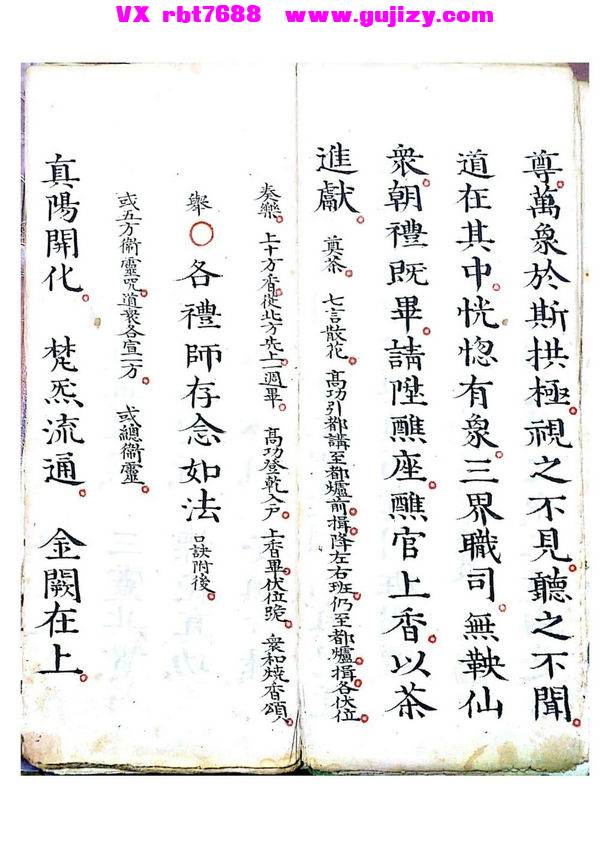 VX rbt7688 www.gujizy.com
尊。萬衆於斯拱極。視之不見。聽之不聞。
道在其中。恍惚有象。三界職司。無鞅仙
衆。朝禮既畢。請陞醮座。醮官上香。以茶
進獻。 奠茶。 七言散花。高功引都講至都爐前。揖降左右班。仍至都爐。揖各伏位。
奏樂。上十方香。從北方先上一週畢。 高功登乾入户。上香畢。伏位跪。 衆和燒香頌。
舉〇各禮師存念如法 口訣附後。
或五方衛靈咒。道衆各宣一方。 或總衛靈。
真陽開化。 梵炁流通。 金闕在上。